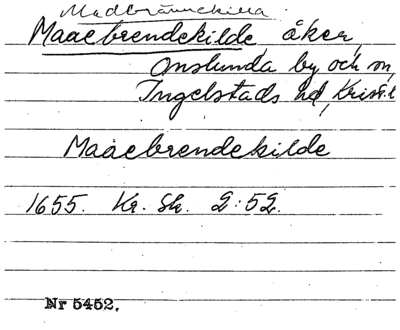 Madbrännekilla
Maaebrendekilde, åker,
Onslunda by och sn,
Ingelstads hd, Krist. l
Maaebrendekilde
1655. Kr. Sk. 2:52.
Nr 5452.